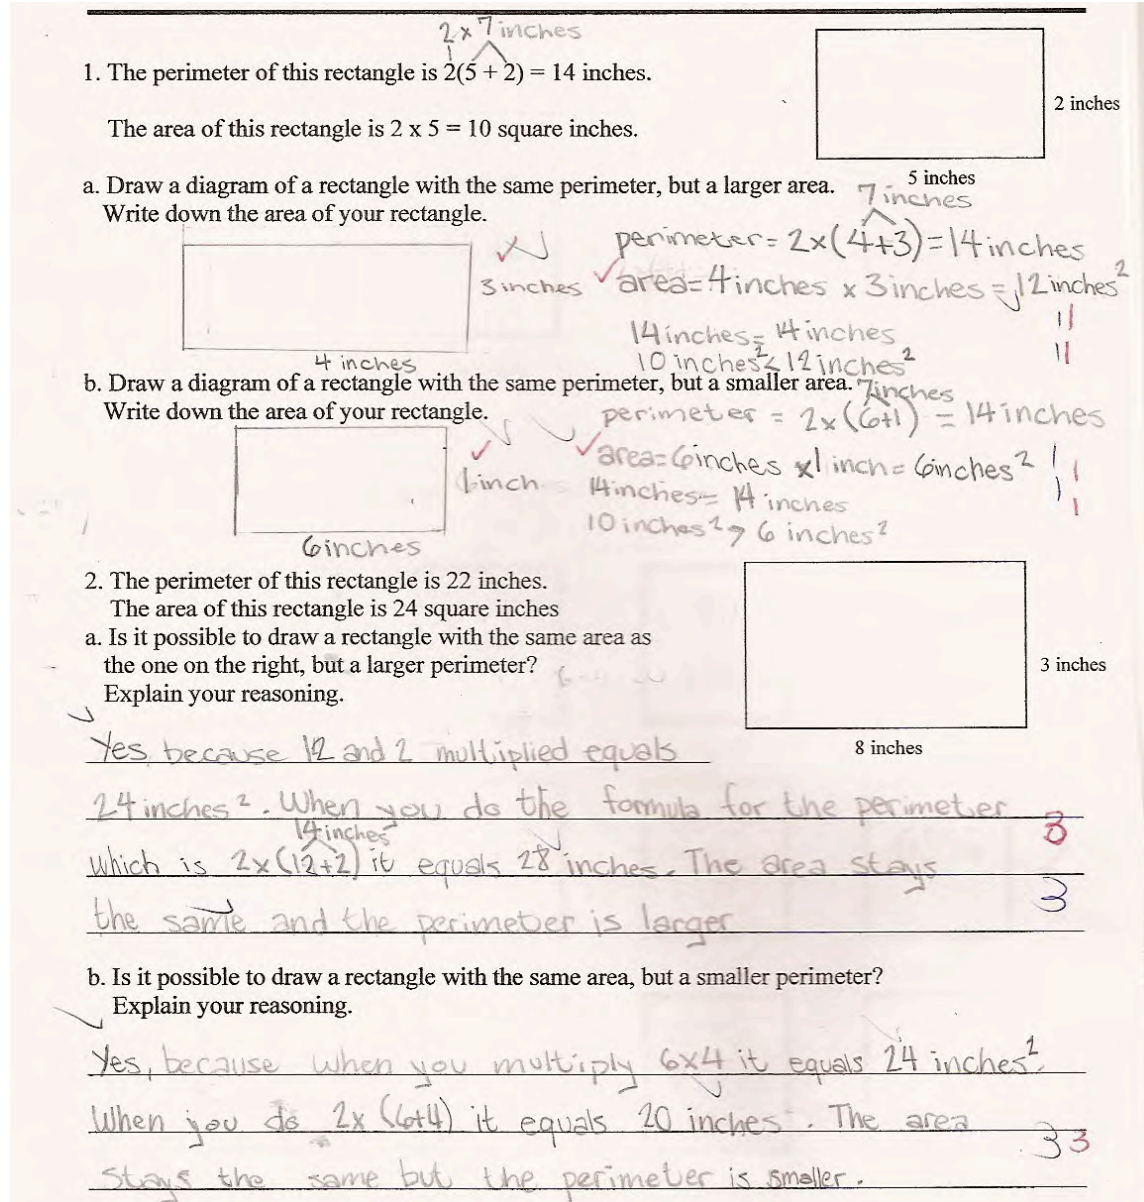 2 x 7 inches
1. The perimeter of this rectangle is 2(5 + 2) = 14 inches.
2 inches
The area of this rectangle is 2 x 5 = 10 square inches.
5 inches
a. Draw a diagram of a rectangle with the same perimeter, but a larger area.
Write down the area of your rectangle.
7 inches
perimeter = 2x(4+3)=14 inches
3 inches
area=4inches x 3inches = 12inches²
14 inches= 14 inches
10 inches²< 12 inches²
4 inches
b. Draw a diagram of a rectangle with the same perimeter, but a smaller area.
Write down the area of your rectangle.
7inches
perimeter = 2x(6+1) = 14 inches
area=6inches x1 inch= 6inches²
1 inch
14inches= 14 inches
10 inches² > 6 inches²
6inches
2. The perimeter of this rectangle is 22 inches.
The area of this rectangle is 24 square inches
a. Is it possible to draw a rectangle with the same area as
the one on the right, but a larger perimeter?
Explain your reasoning.
3 inches
8 inches
Yes because 12 and 2 multiplied equals
24 inches². When you do the formula for the perimeter
14 inches
which is 2x(12+2) it equals 28 inches. The area stays
the same and the perimeter is larger
3
3
b. Is it possible to draw a rectangle with the same area, but a smaller perimeter?
Explain your reasoning.
Yes, because when you multiply 6x4 it equals 24 inches².
When you do 2x (6+4) it equals 20 inches. The area
stays the same but the perimeter is smaller.
3 3